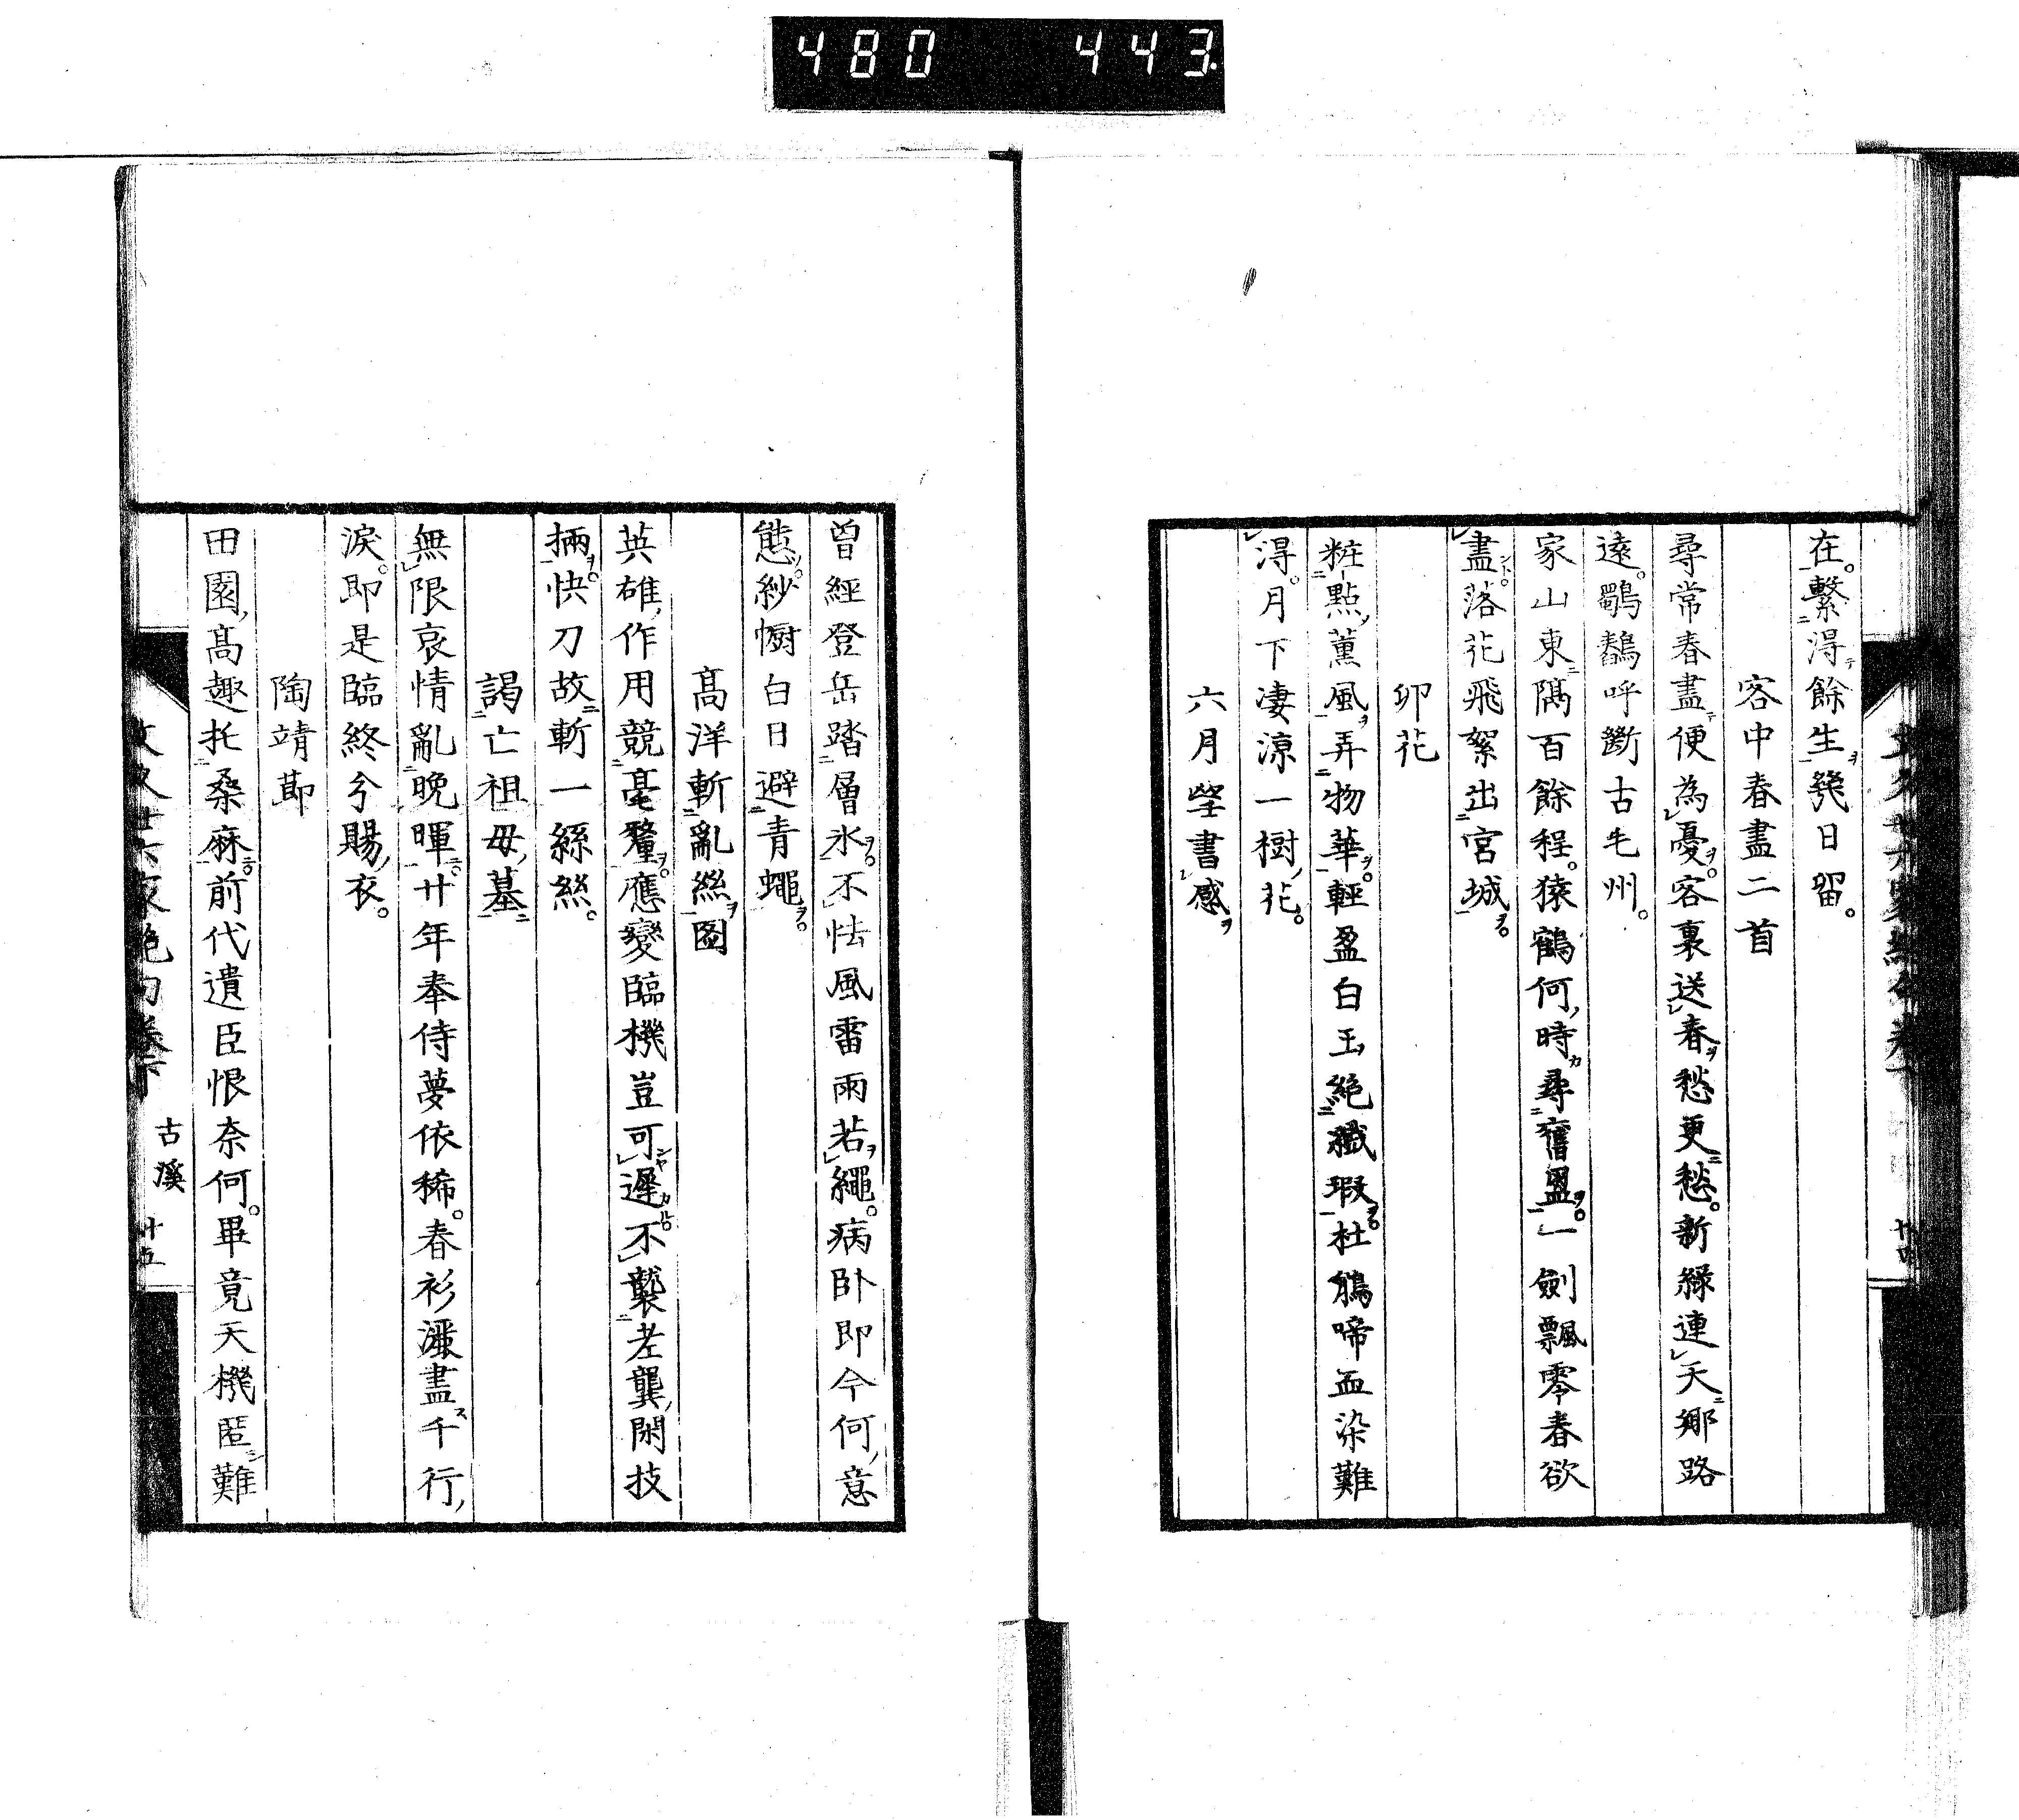 480 443
在。繫得餘生幾日留。
客中春盡二首
尋常春盡便為憂。客裏送春愁更愁。新綠連天鄉路
遠。鷓鴣呼斷古毛州。
家山東隔百餘程。猿鶴何時尋舊盟。一劍飄零春欲
盡。落花飛絮出宮城。
卯花
粧點薰風弄物華。輕盈白玉絕纖瑕。杜鵑啼血染難
得。月下凄涼一樹花。
六月堂書感
曾經登岳踏層氷。不怯風雷雨若繩。病臥即今何意
態。紗㡡白日避青蠅。
高洋斬亂絲圖
英雄作用競毫釐。應變臨機豈可遲。不襲老龔閑技
倆。快刀故斬一絲絲。
謁亡祖母墓
無限哀情亂晚暉。廿年奉侍夢依稀。春衫濕盡千行
淚。即是臨終分賜衣。
陶靖節
田園高趣托桑麻。前代遺臣恨奈何。畢竟天機匿難
古溪 廿五